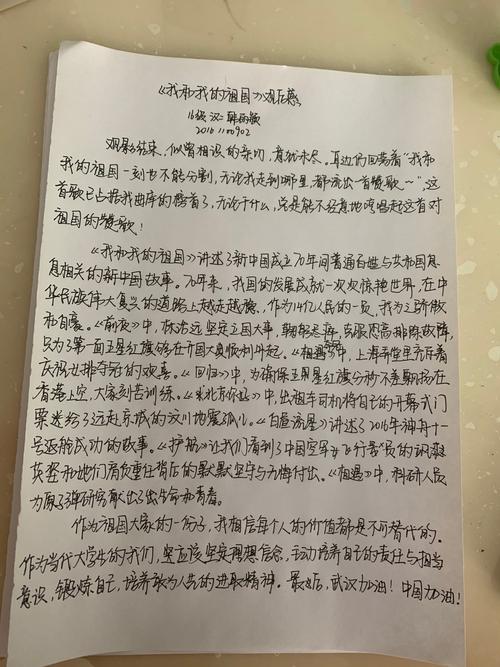 《我和我的祖国》观后感
16级 汉二 韩
20161100902
观影结束，似曾相识的亲切，意犹未尽。耳边仍回荡着“我和
我的祖国一刻也不能分割，无论我走到哪里，都流出一首赞歌～”，这
首歌已占据我曲库的榜首了，无论干什么，总是能不经意地哼唱起这首对
祖国的赞歌！
《我和我的祖国》讲述了新中国成立70年间普通百姓与共和国息
息相关的新中国故事。70年来，我国的发展成就一次次惊艳世界，在中
华民族伟大复兴的道路上越走越稳，作为14亿人民的一员，我为之骄傲
和自豪。《前夜》中，林治远坚定立国大事，克服困难排除故障，
只为了第一面五星红旗能够在开国大典顺利升起。《夺冠》中，上海弄堂里齐齐看
庆祝女排夺冠的欢喜。《回归》中，为确保五星红旗分秒不差飘扬在
香港上空，大家刻苦训练。《北京你好》中，出租车司机将自己的开幕式门
票送给了远赴京城的汶川地震孤儿。《白昼流星》讲述了2016年神舟十一
号返航成功的故事。《护航》让我们看到了中国空军女飞行员的飒爽
英姿和她们肩负重任背后的默默坚守与无悔付出。《相遇》中，科研人员
为原子弹研究献出了生命和青春。
作为祖国大家的一份子，我相信每个人的价值都是不可替代的。
作为当代大学生的我们，更应该坚定理想信念，主动培养自己的责任与担当
意识，锻炼自己，培养敢为人先的进取精神。最后，武汉加油！中国加油！